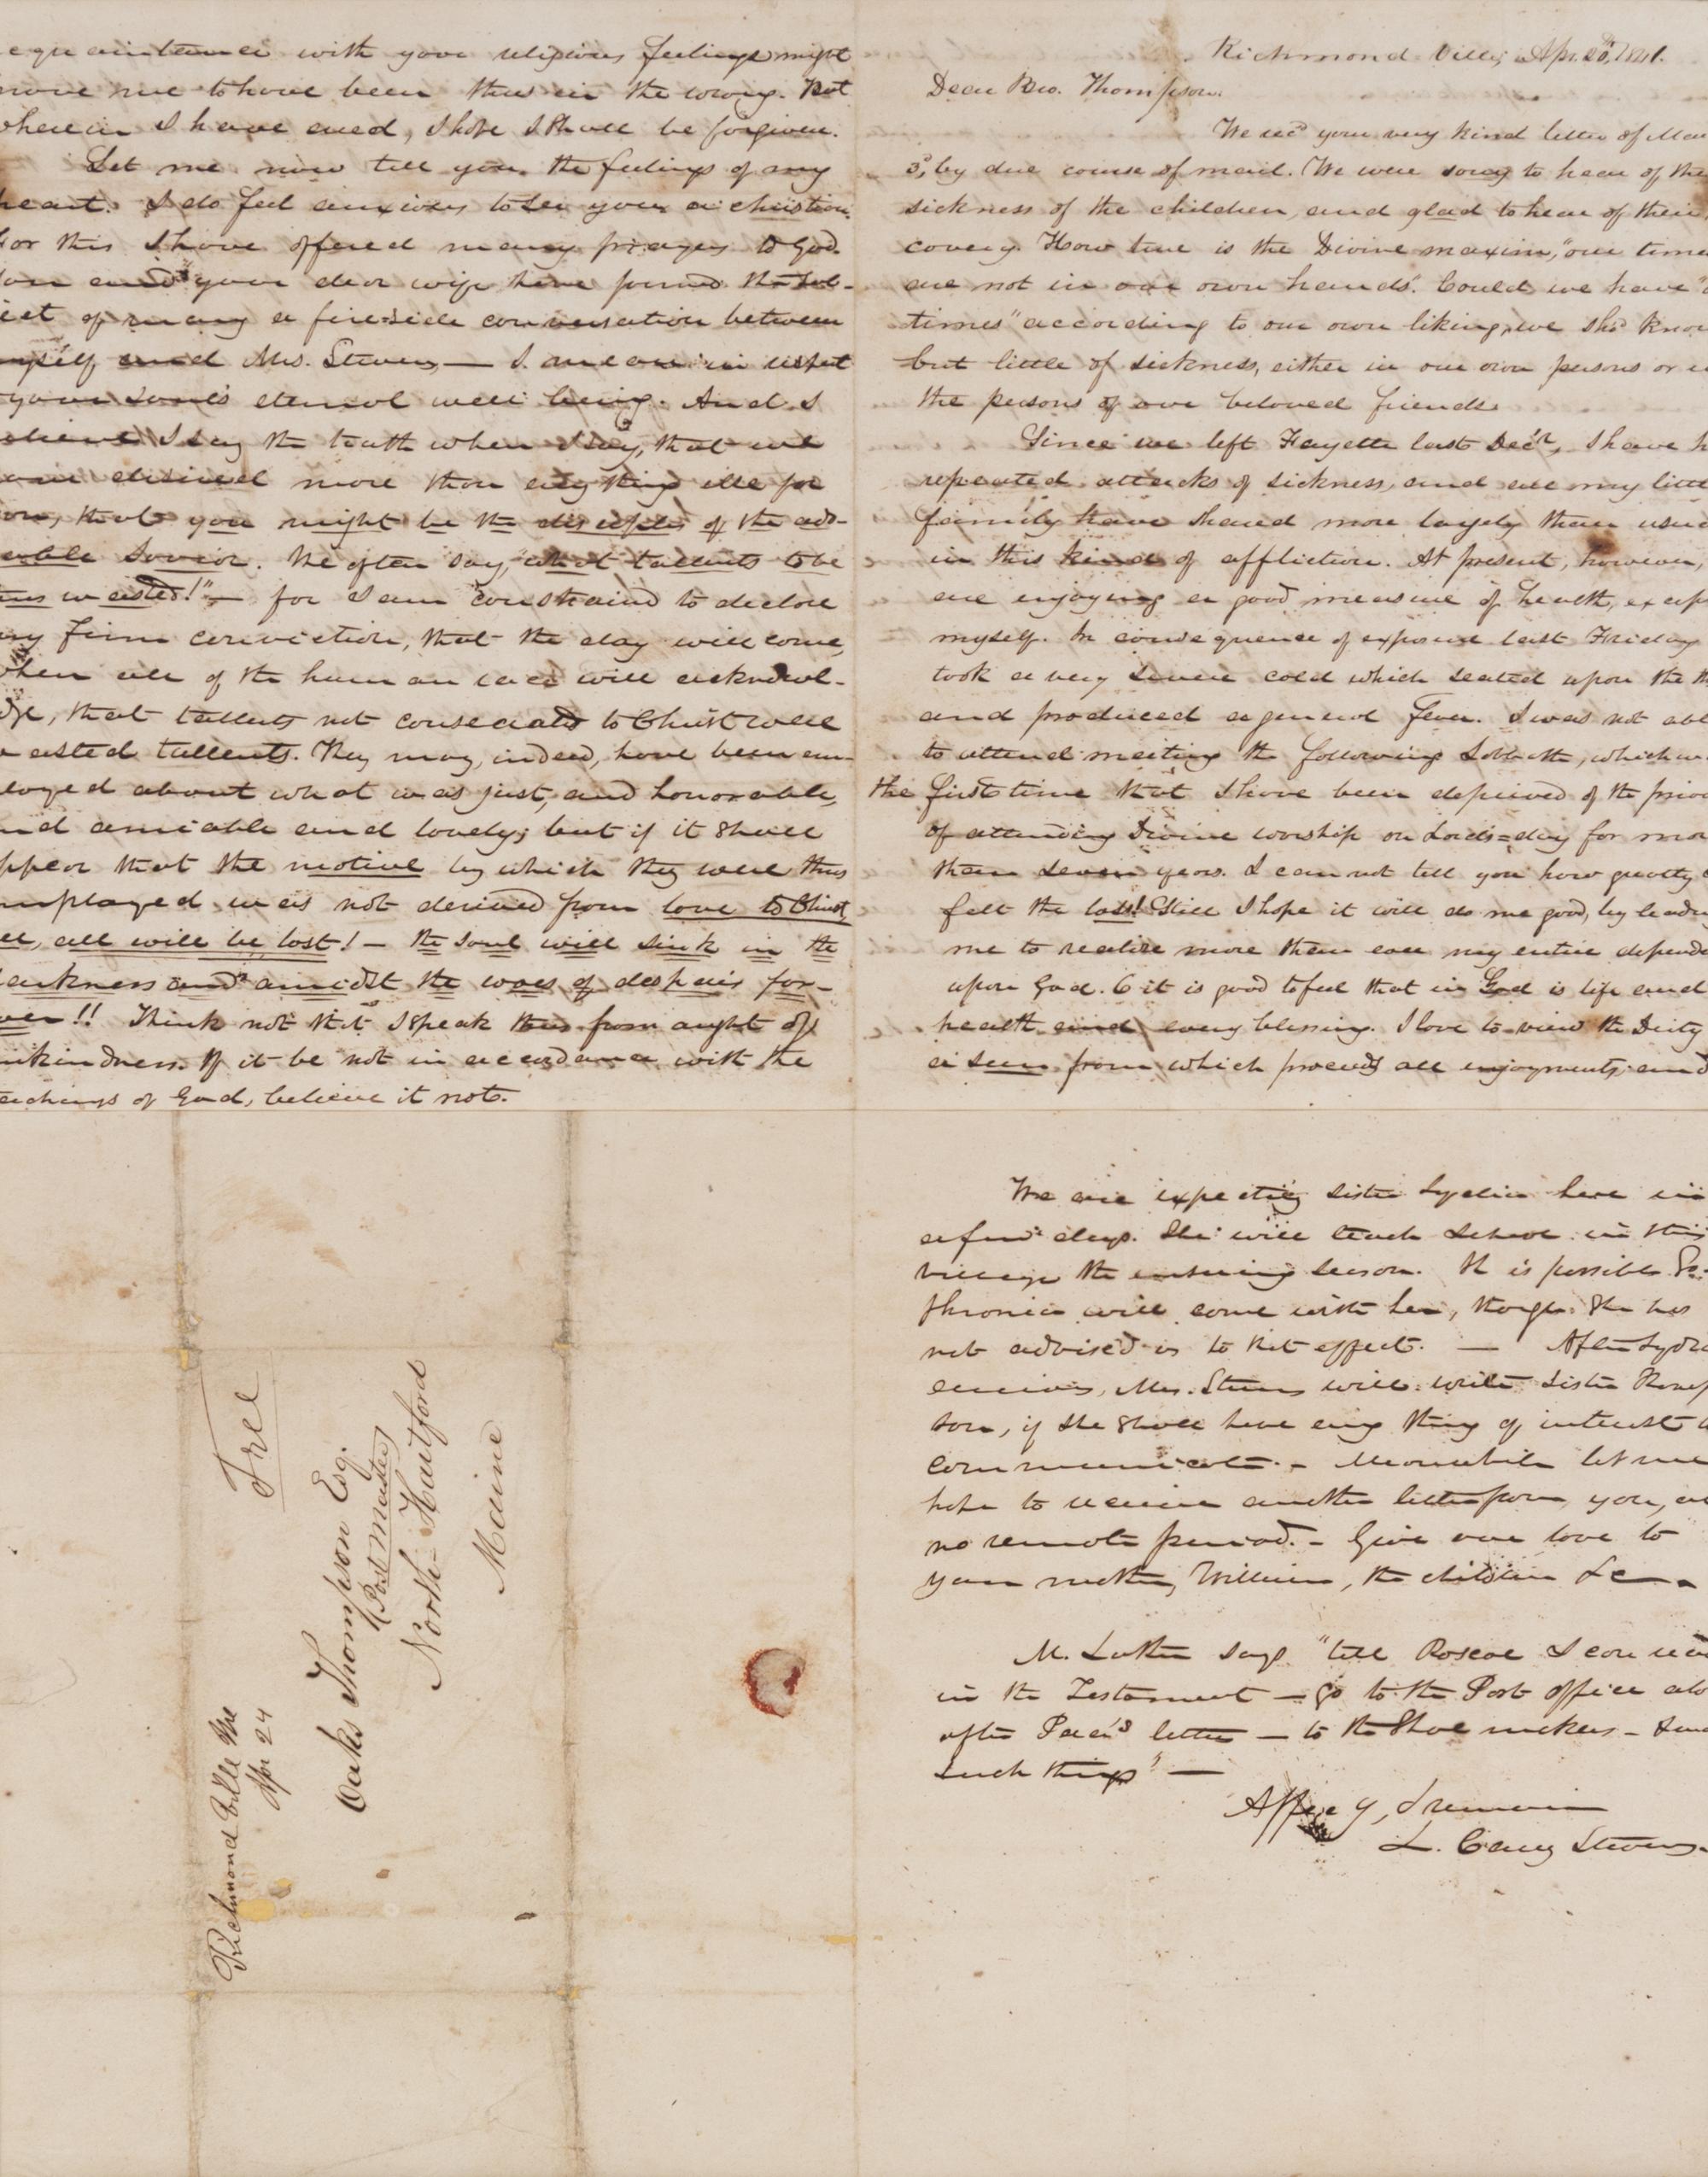 Richmond Ville, Apr. 20, 1841.
Dear Bro. Thompson.
We rec'd your very kind letter of Mar
3d, by due course of mail. We were sorry to hear of the
sickness of the children, and glad to hear of their
covery. How true is the Divine maxim, "our times
are not in our own hands". Could we have "
times" according to our own liking, we shd. know
but little of sickness, either in our own persons or
the persons of our beloved friends.
Since we left Fayette last Dec'r, I have h
repeated attacks of sickness, and all my little
family have shared more largely than usu
in this kind of affliction. At present, however,
are enjoying a good measure of health, except
myself. In consequence of exposure last Friday
took a very severe cold which seated upon the
and produced a general fever. I was not abl
to attend meeting the following Sabbath, which w
the first time that I have been deprived of the priv
of attending Divine worship on Lord's=day for mor
than seven years. I can not tell you how greatly
felt the loss! Still I hope it will do me good, by leadi
me to realize more than ever my entire depend
upon God. O it is good to feel that in God is life and
health and every blessing. I love to view the Deity
a sun from which proceeds all enjoyments, and
equaintance with your religious feelings might
prove me to have been thus in the wrong. But
wherein I have erred, I hope I shall be forgiven.
Let me now tell you the feelings of my
heart. I do feel anxious to see you a christian.
For this I have offered many prayers to God.
You and your dear wife have formed the sub-
ject of many a fireside conversation between
myself and Mrs. Stevens — I mean in respect
your soul's eternal well being. And I
believe I say the truth when I say, that we
have desired more than any thing else for
you, that you might be the disciples of the ado-
rable Savior. We often say, "what tallents to be
thus wasted!" — for I am constrained to declare
my firm conviction, that the day will come,
when all of the human race will acknowl-
edge, that tallents not consecrated to Christ were
wasted tallents. They may, indeed, have been em-
ployed about what was just, and honorable,
and amiable and lovely; but if it shall
appear that the motive by which they were thus
employed was not derived from love to Christ,
all, all will be lost! — the soul will sink in the
darkness and amidst the woes of despair for-
ever!! Think not that I speak thus from aught of
unkindness. If it be not in accordance with the
teachings of God, believe it not.
We are expecting sister Lydia here in
a few days. She will teach school in this
village the ensuing season. It is possible So-
phronia will come with her, though she has
not advised us to that effect. — After Lydia
arrives, Mrs. Stevens will write sister Thomp
son, if she shall have any thing of interest
communicate. — Meanwhile let me
hope to receive another letter from you, at
no remote period. — Give our love to
your mother, William, the children &c.
M. Luther says "tell Roscoe I can read
in the Testament — go to the Post office al
after Pa's letter — to the Shoe makers —
such things" —
Affec'y, I remain
L. Carey Stevens.
Richmond Ville Me
Apr 24
Free
Oaks Thompson Esq.
(Post Master)
North Hartford
Maine